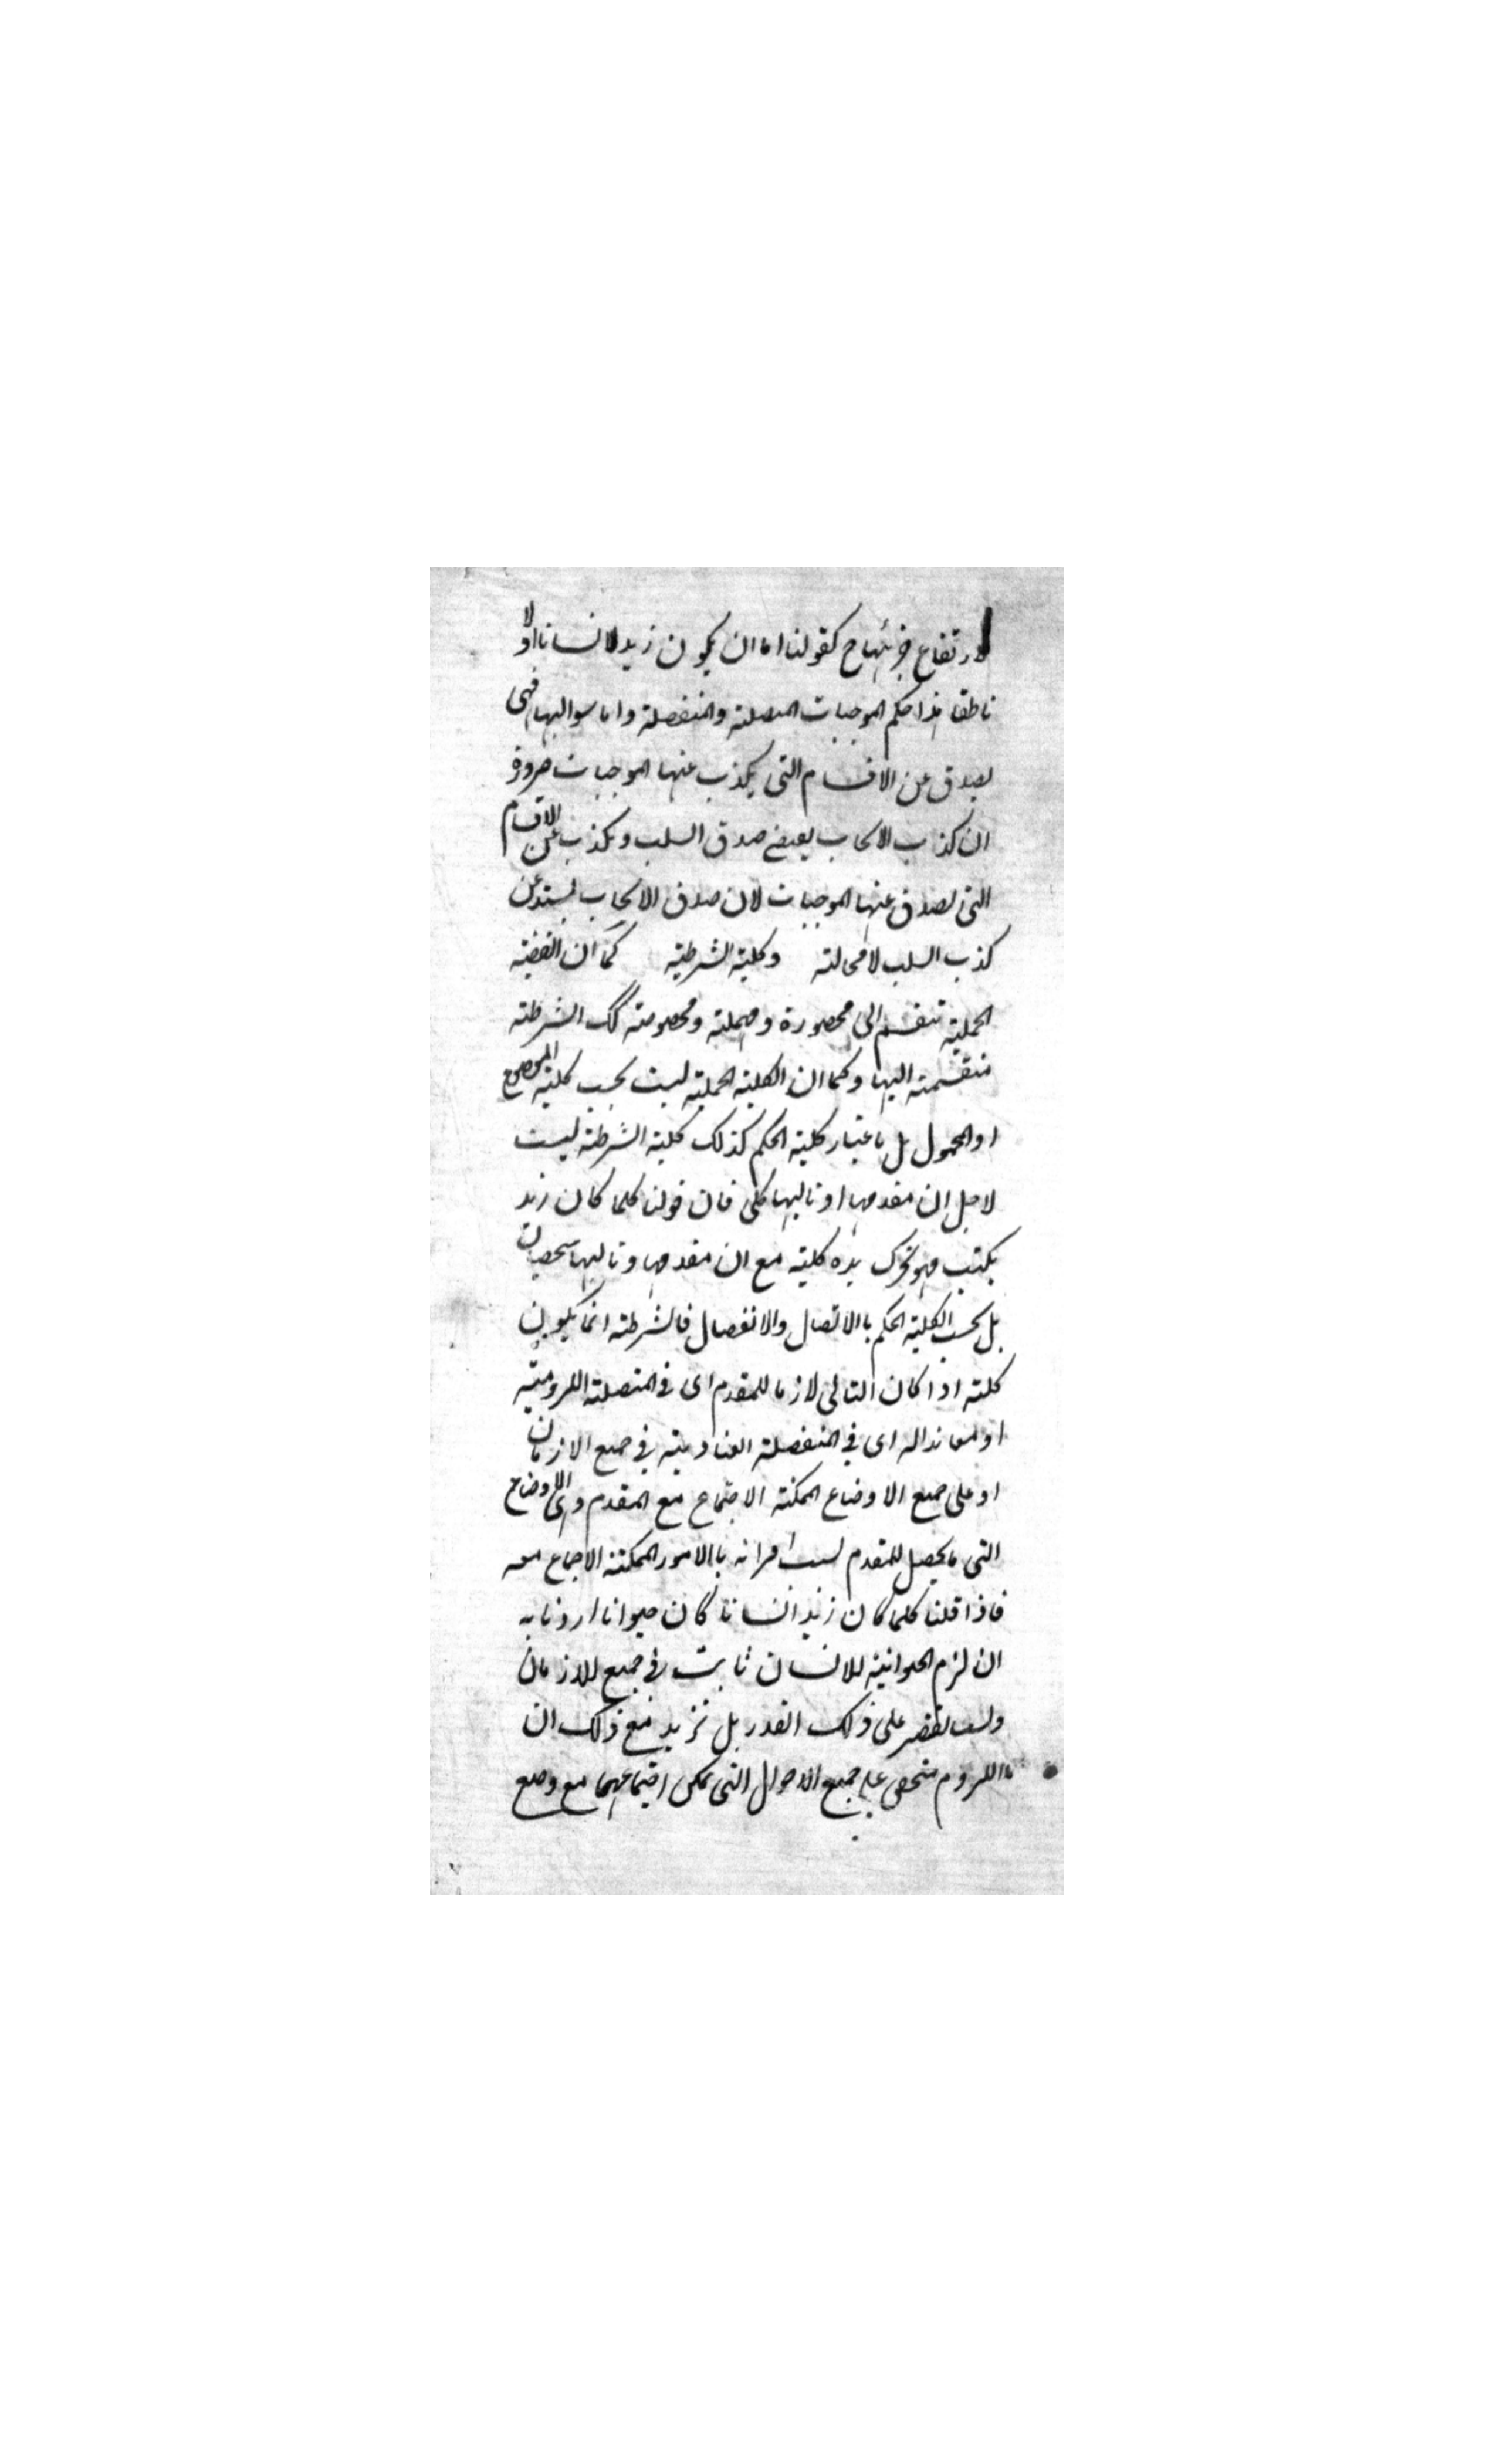 لارتفاع جزئيها ح كقولنا اما ان يكون زيد لا انسانا او لا
ناطقا هذا حكم الموجبات المتصلة والمنفصلة واما سوالبها فهى
يصدق عن الاقسام التى يكذب عنها الموجبات ضرورة
ان كذب الايجاب يقتضى صدق السلب وتكذب عن الاقسام
التى يصدق عنها الموجبات لان صدق الايجاب يستدعى
كذب السلب لا محالة وكلية الشرطية كما ان القضية
الحملية تنقسم الى محصورة ومهملة ومخصوصة كك الشرطية
منقسمة اليها وكما ان الكلية الحملية ليست بحسب كلية الموضوع
او المحمول بل باعتبار كلية الحكم كذلك كلية الشرطية ليست
لاجل ان مقدمها او تاليها كلى فان قولنا كلما كان زيد
يكتب فهو تحرك يده كلية مع ان مقدمها وتاليها شخصيان
بل بحسب الكلية الحكم باالاتصال والانفصال فالشرطية انما يكون
كلية اذا كان التالى لازما للمقدم اى فى المتصلة اللزومية
او معاندا له اى فى المنفصلة العنادية فى جميع الازمان
او على جميع الاوضاع الممكنة الاجتماع مع المقدم وهى الاوضاع
التى ما يحصل للمقدم بسبب اقترانه باالامور الممكنة الاجتماع معه
فاذا قلنا كلما كان زيد انسانا كان حيوانا اردنا به
ان لزم الحيوانية للانسان ثابت فى جميع الازمان
ولسنا نقتصر على ذلك القدر بل نزيد مع ذلك ان
اللزوم متحقق على جميع الاحوال التى يمكن اجتماعهما مع وضع